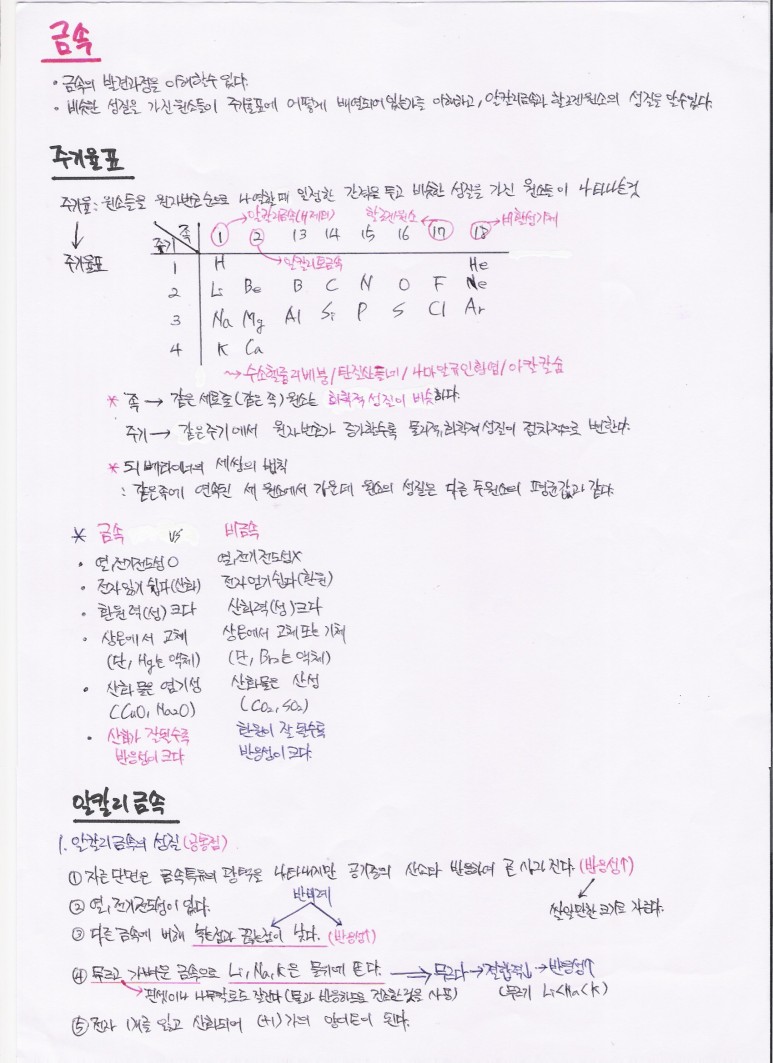 금속
· 금속의 발견과정을 이해할수 있다.
· 비슷한 성질을 가진 원소들이 주기율표에 어떻게 배열되어있는가를 이해하고, 알칼리금속과 할로겐원소의 성질을 알수있다.
주기율표
주기율 : 원소들을 원자번호순으로 나열할때 일정한 간격을 두고 비슷한 성질을 가진 원소들이 나타나는것
↓
주기율표
→알칼리금속(H제외) 할로겐원소← →비활성기체
족 ① ② 13 14 15 16 ⑰ ⑱
주기 →알칼리토금속
1 H He
2 Li Be B C N O F Ne
3 Na Mg Al Si P S Cl Ar
4 K Ca
~→ 수소헬륨리베붕/탄질산플네/나마알규인황염/아칼칼슘
* 족 → 같은 세로줄(같은 족) 원소는 화학적성질이 비슷하다.
주기 → 같은주기에서 원자번호가 증가할수록 물리적,화학적성질이 점차적으로 변한다.
* 되베라이너의 세쌍의 법칙
: 같은족에 연속된 세 원소에서 가운데 원소의 성질은 다른 두원소의 평균값과 같다.
* 금속 VS 비금속
· 열,전기전도성O 열,전기전도성X
· 전자잃기 쉽다(산화) 전자얻기쉽다(환원)
· 환원력(성) 크다 산화력(성)크다
· 상온에서 고체 상온에서 고체또는 기체
(단, Hg는 액체) (단, Br₂는 액체)
· 산화물은 염기성 산화물은 산성
(CuO, Na₂O) (CO₂, SO₂)
· 산화가 잘될수록 환원이 잘 될수록
반응성이 크다 반응성이 크다.
알칼리금속
1. 알칼리금속의 성질(공통점)
① 자른단면은 금속특유의 광택을 나타내지만 공기중의 산소와 반응하여 곧 사라진다. (반응성↑)
반비례
② 열,전기전도성이 있다. 쌀알만한 크기로 자른다.
③ 다른 금속에 비해 녹는점과 끓는점이 낮다. (반응성↑)
④ 무르고 가벼운 금속으로 Li, Na, K은 물위에 뜬다. → 무르다→결합력↓→반응성↑
→핀셋이나 나무칼로도 잘린다(물과 반응하므로 건조한것을 사용) (무르기 Li<Na<K)
⑤ 전자 1개를 잃고 산화되어 (+1)가의 양이온이 된다.